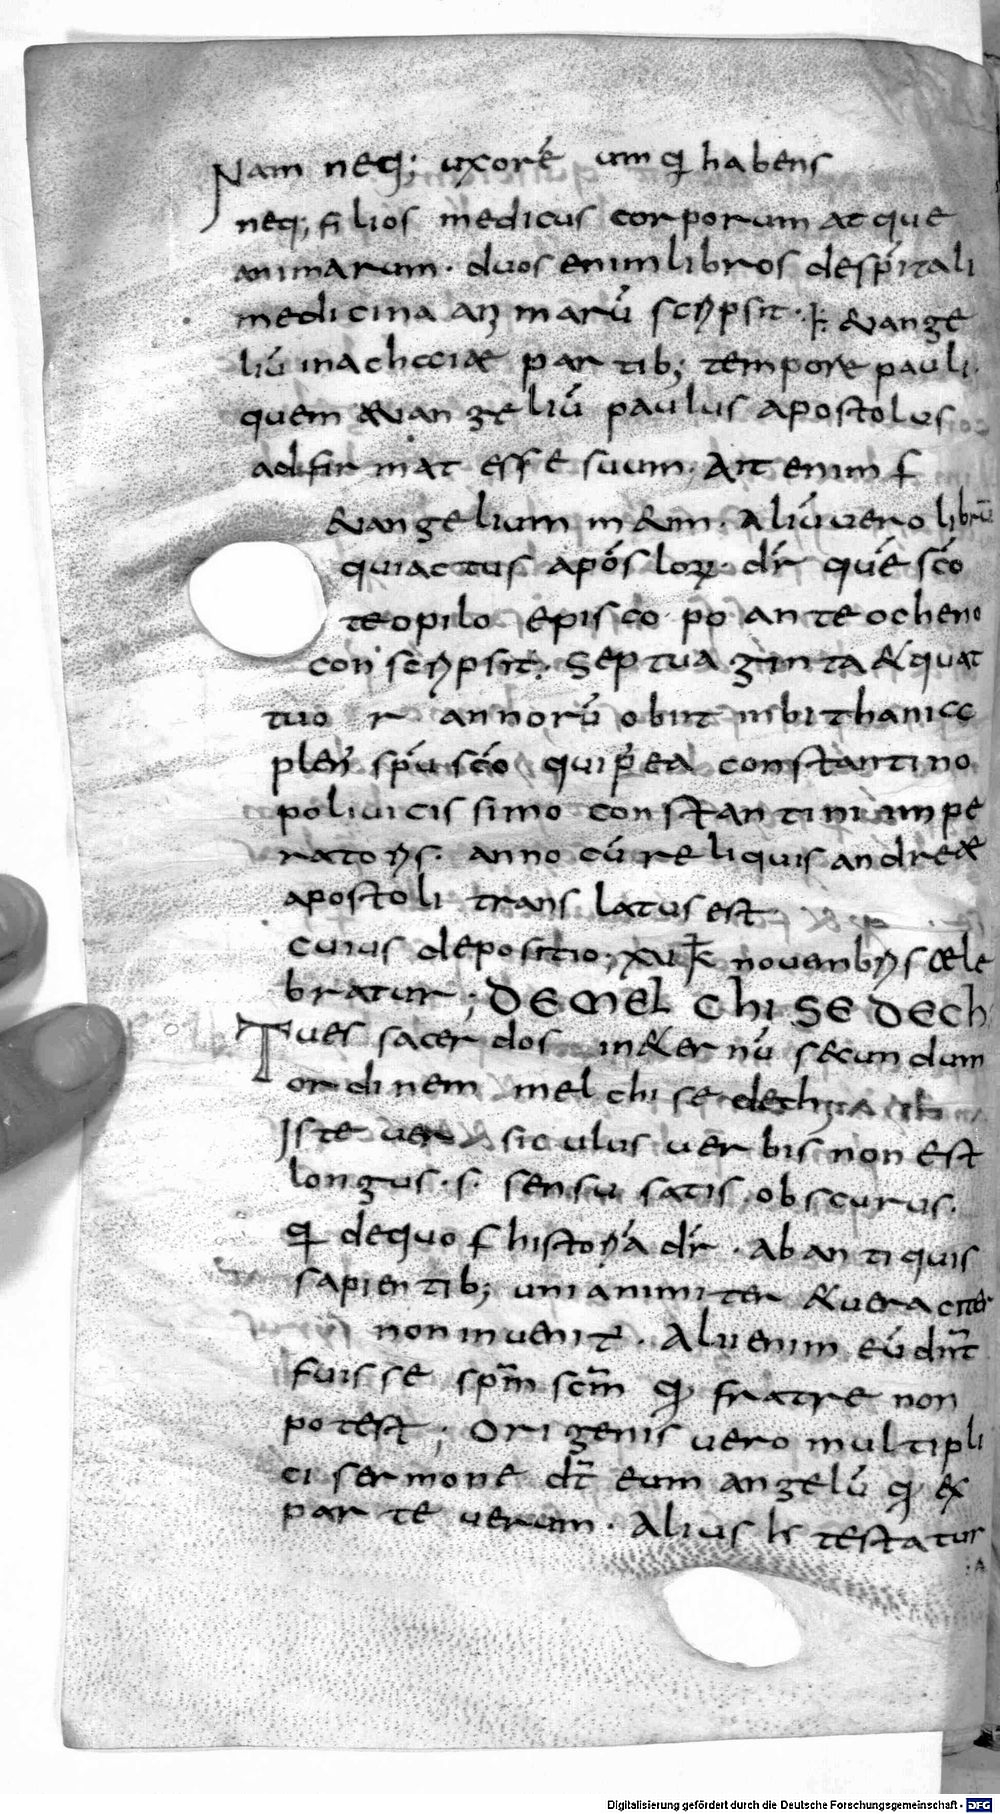 Nam neq; uxorē umqͥ habens
neq; filios medicus corporum atque
animarum · duos enim libros despiritali
medicina animarū scripsit · euange
liū inachaiae partib; tempore pauli ·
quem aeuangeliū paulus apostolus
adfirmat esse suum · Ait enim s̄
euangelium meum · Aliūuero librū
quiactus aposłorꝝ · dr̄ quē sc̄o
teopilo episcopo anteocheno
conscripsit · Septuaginta &quat
tuor annorū obiit inbithania
plen' sp̄u sc̄o quiꝑea constantino
poliuicissimo constantini impe
ratoris · anno cū reliquis andreae
apostoli translatus est
cuius depositio; xu k nouenbris caele
bratur; DE MELCHISEDECH
Tues sacerdos in&ernū secundum
ordinem melchisedech
Iste uersiculus uerbis non est
longus · s · sensu satis obscurus ·
qͥ dequo s̄ historia dr̄ · ab antiquis
sapientib; unianimiter &ueraciter
non inuenit̄ · Alii enim eū dn̄t
fuisse sp̄m sc̄m qͥ fratre non
potest; Origenis uero multipli
ci sermone dt̄ eum angelū qͥ ex
parte uerum · Alius testatur